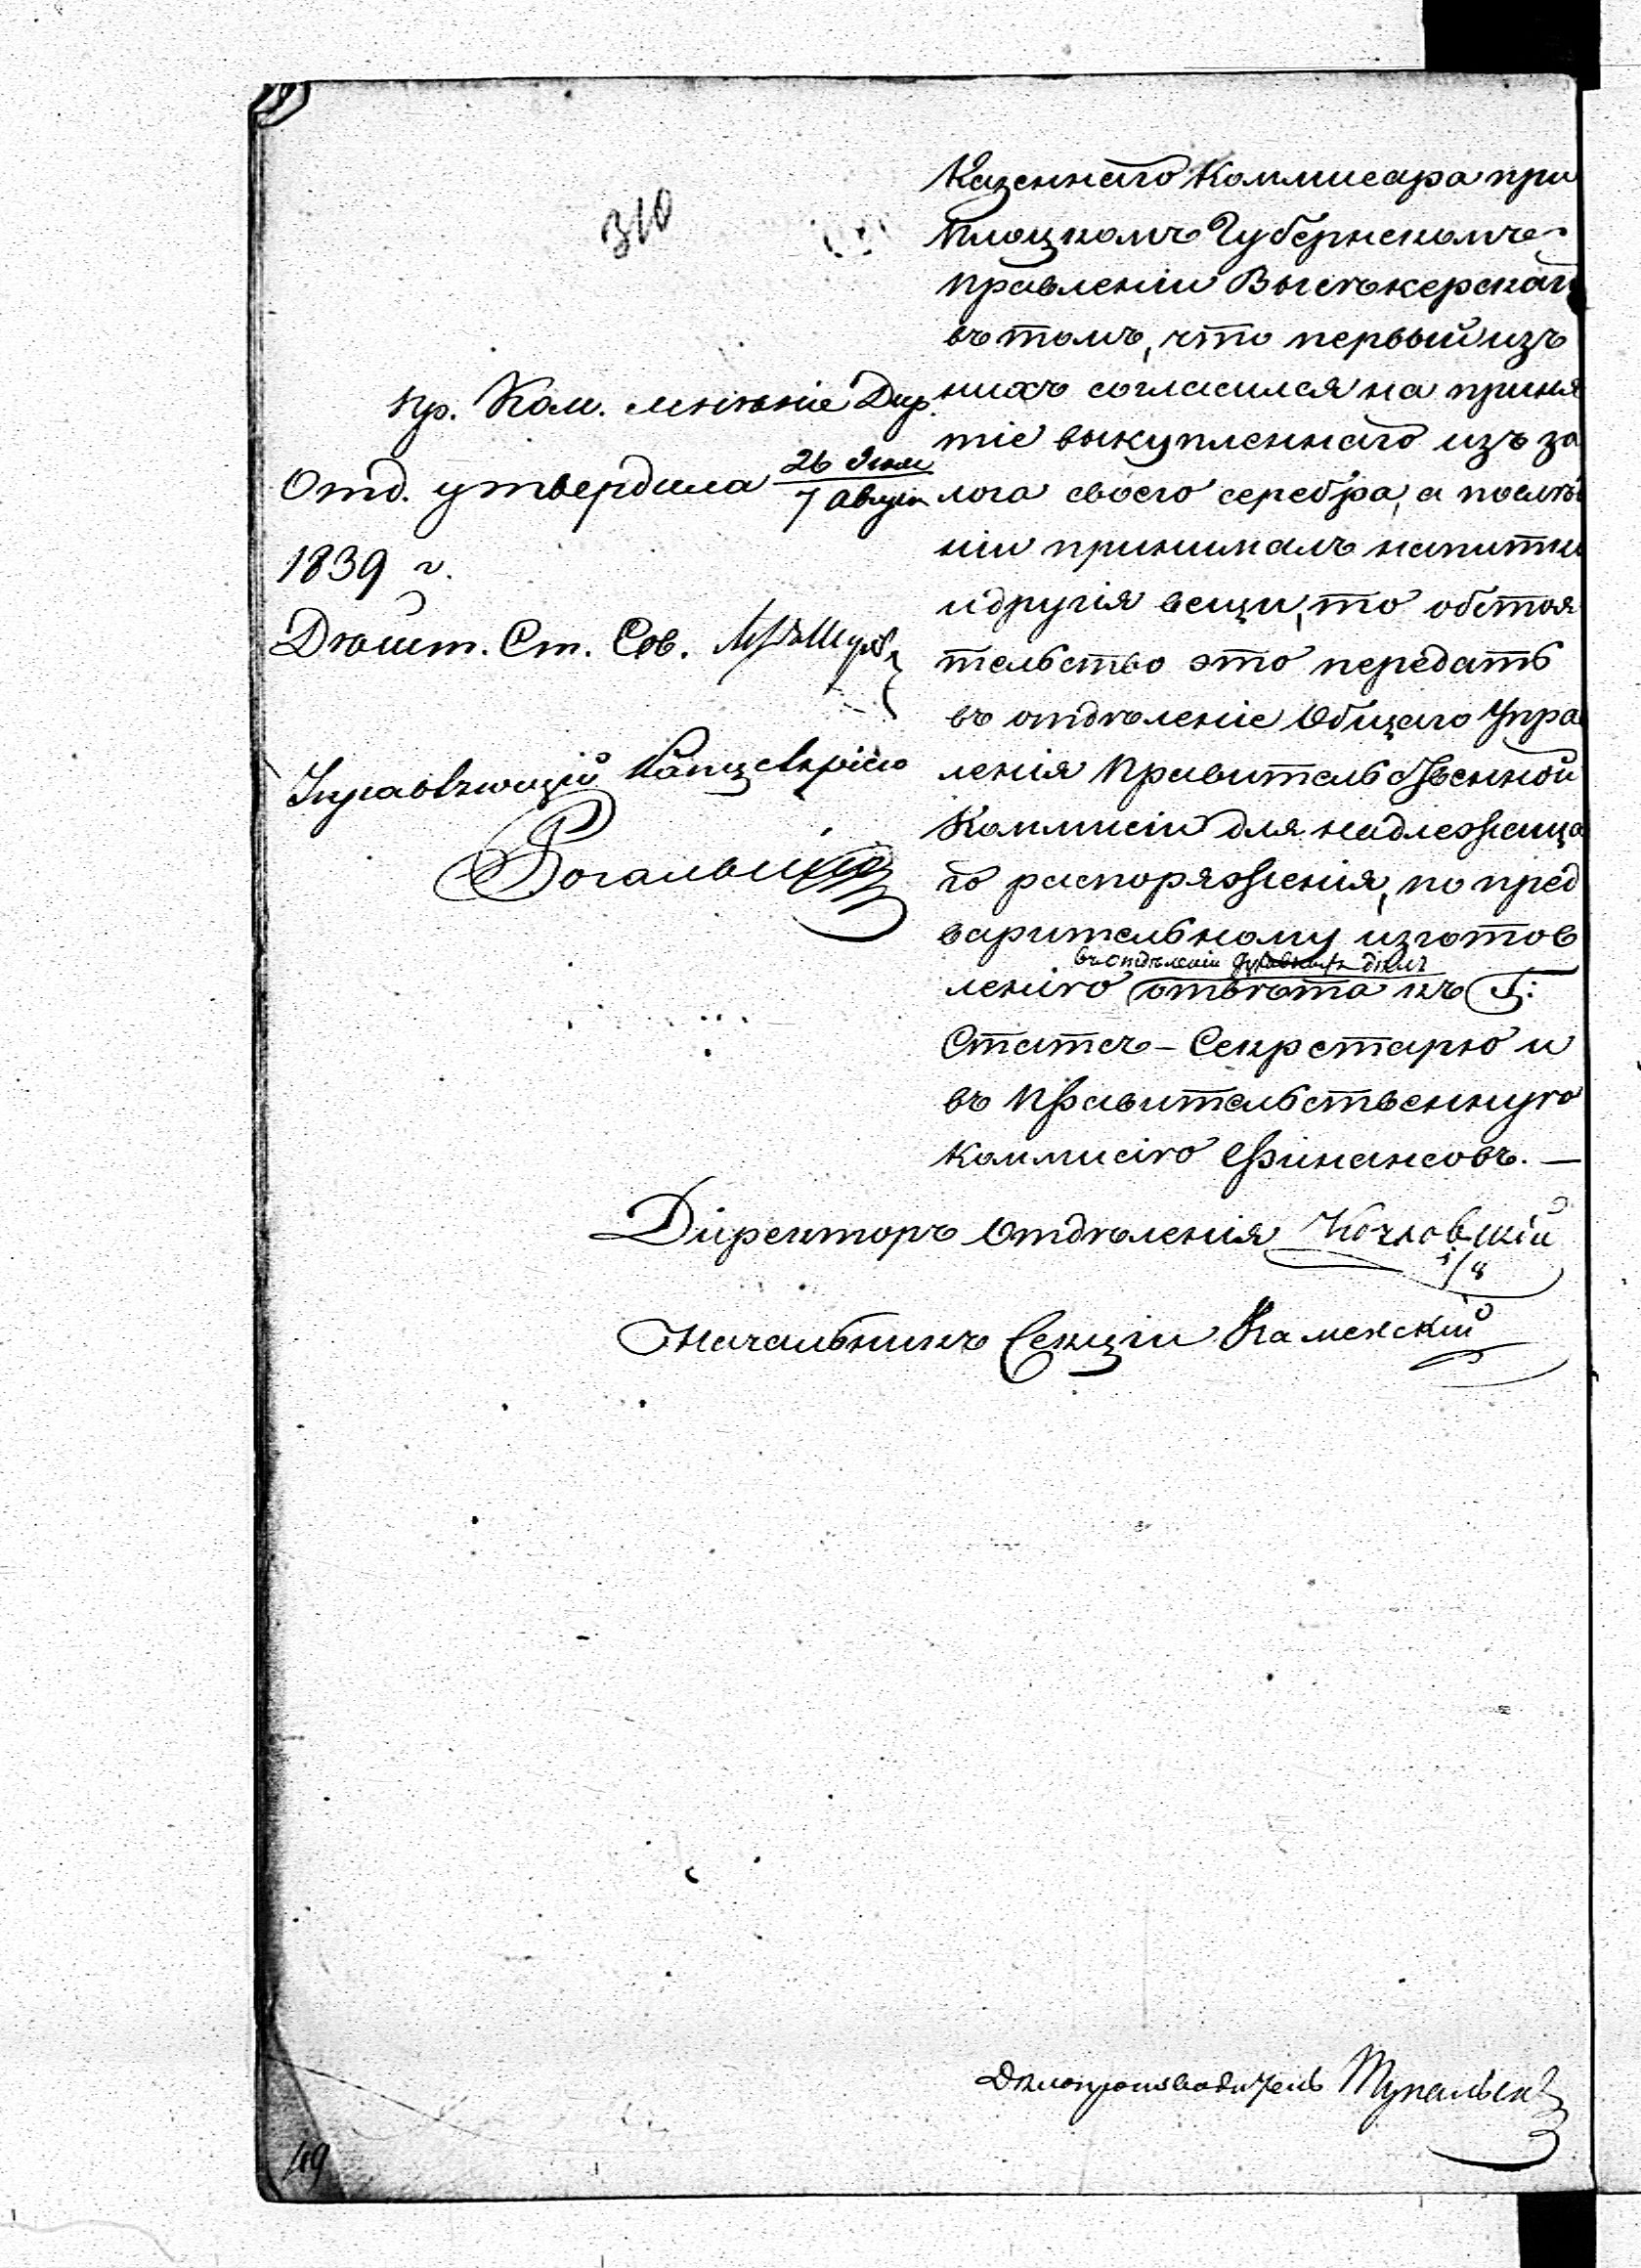 310
Казеннаго Коммисара при
Плоцкомъ Губернскомъ
Правленіи
въ томъ, что первый изъ
нихъ согласился на приня
тіе выкупленнаго изъ за
лога своего серебра, а послѣд
ній принималъ напитки
и другія вещи, то обстоя
тельство это передать
въ отдѣленіе Общаго Упра
ленія Правительственной
Коммисіи для надлежаща
го распоряженія, по пред
варительному изготов
въ отдѣленіи Духовныхъ дѣлъ
ленію отвѣта къ Г:
Статсъ-Секретарю и
въ Правительственную
Коммисію Финансовъ. —
Пр. Ком. мнѣніе Дир.
Отд. утвердила 26 Іюля / 7 Август
1839 г.
Дѣйст. Ст. Сов.
Управляющій Канцеляріею
Директоръ Отдѣленія
1/8
Начальникъ Секціи Каменскій
Дѣлопроизводитель
49